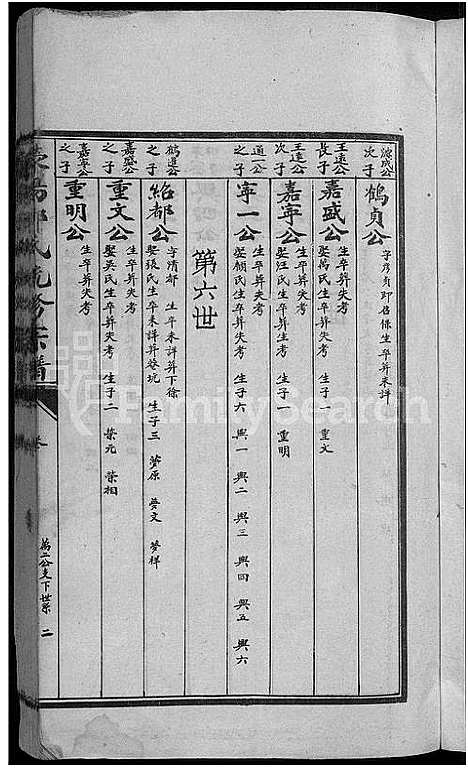 淙成公次子
鶴貞公
字彥貞即居保生卒葬未詳
玉遠公長子
嘉盛公
生卒葬失考
娶萬氏生卒葬失考 生子一 重文
玉遠公次子
嘉寧公
生卒葬失考
娶汪氏生卒葬失考 生子一 重明
道一公之子
寧一公
生卒葬失考
娶顏氏生卒葬失考 生子六 興一 興二 興三 興四 興五 興六
第六世
鶴道公之子
紹都公
字清都 生卒未詳葬下徐
娶張氏生卒未詳葬 坑 生子三 夢原 夢文 夢祥
嘉盛公之子
重文公
生卒葬失考
娶吳氏生卒葬失考 生子二 榮元 榮相
嘉寧公之子
重明公
生卒葬失考
氏流 宗譜
卷
萬二公支下世系 二
FamilySearch